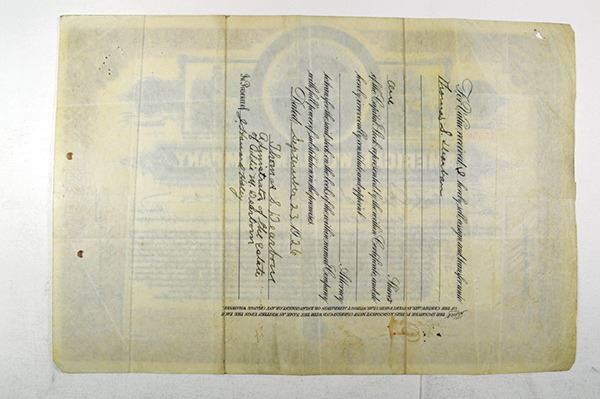 For Value received, I hereby sell, assign and transfer unto
Thomas S. Dearborn
One Shares
of the Capital Stock represented by the within Certificate, and do
hereby irrevocably constitute and appoint
Attorney
to transfer the said stock on the books of the within named Company
with full power of substitution in the premises.
Dated September 23 1926
Thomas S. Dearborn
Administrator of the estate
of M. Dearborn
In Presence of
THE SIGNATURE TO THIS ASSIGNMENT MUST CORRESPOND WITH THE NAME AS WRITTEN UPON THE FACE
OF THE CERTIFICATE, IN EVERY PARTICULAR, WITHOUT ALTERATION OR ENLARGEMENT, OR ANY CHANGE WHATEVER.
COMPANY